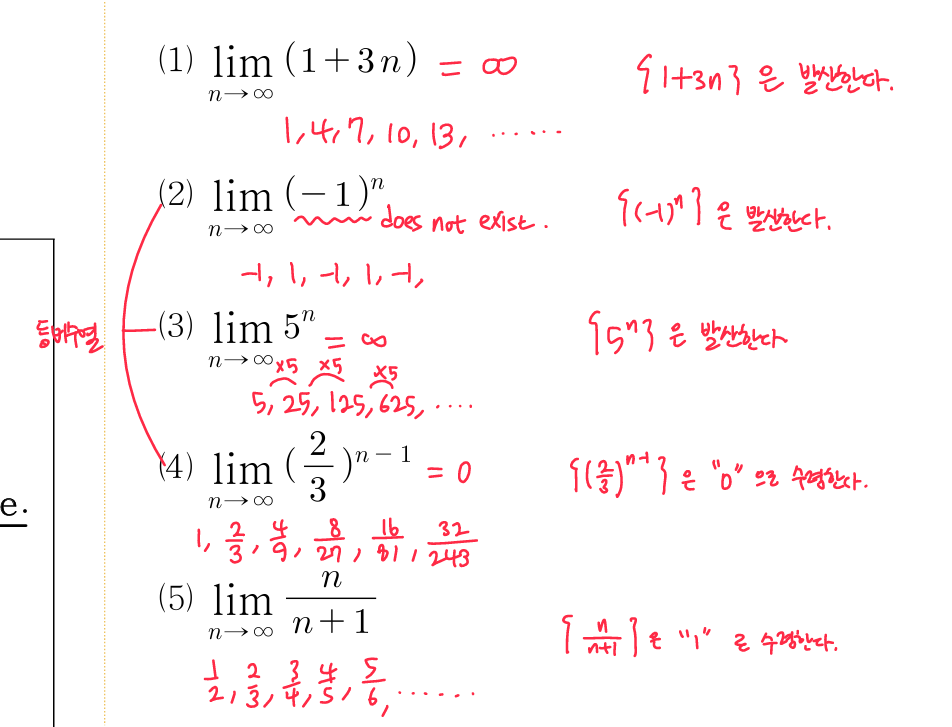 (1) lim n→∞ (1+3n) = ∞ {1+3n} 은 발산한다.
1, 4, 7, 10, 13, ······
(2) lim n→∞ (-1)ⁿ does not exist. {(-1)ⁿ} 은 발산한다.
-1, 1, -1, 1, -1,
등비수열
(3) lim n→∞ 5ⁿ = ∞ {5ⁿ} 은 발산한다
×5 ×5 ×5
5, 25, 125, 625, ····
(4) lim n→∞ (2/3)ⁿ⁻¹ = 0 {(2/3)ⁿ⁻¹} 은 "0" 으로 수렴한다.
e.
1, 2/3, 4/9, 8/27, 16/81, 32/243
(5) lim n→∞ n/(n+1) {n/(n+1)} 은 "1" 로 수렴한다.
1/2, 2/3, 3/4, 4/5, 5/6, ······